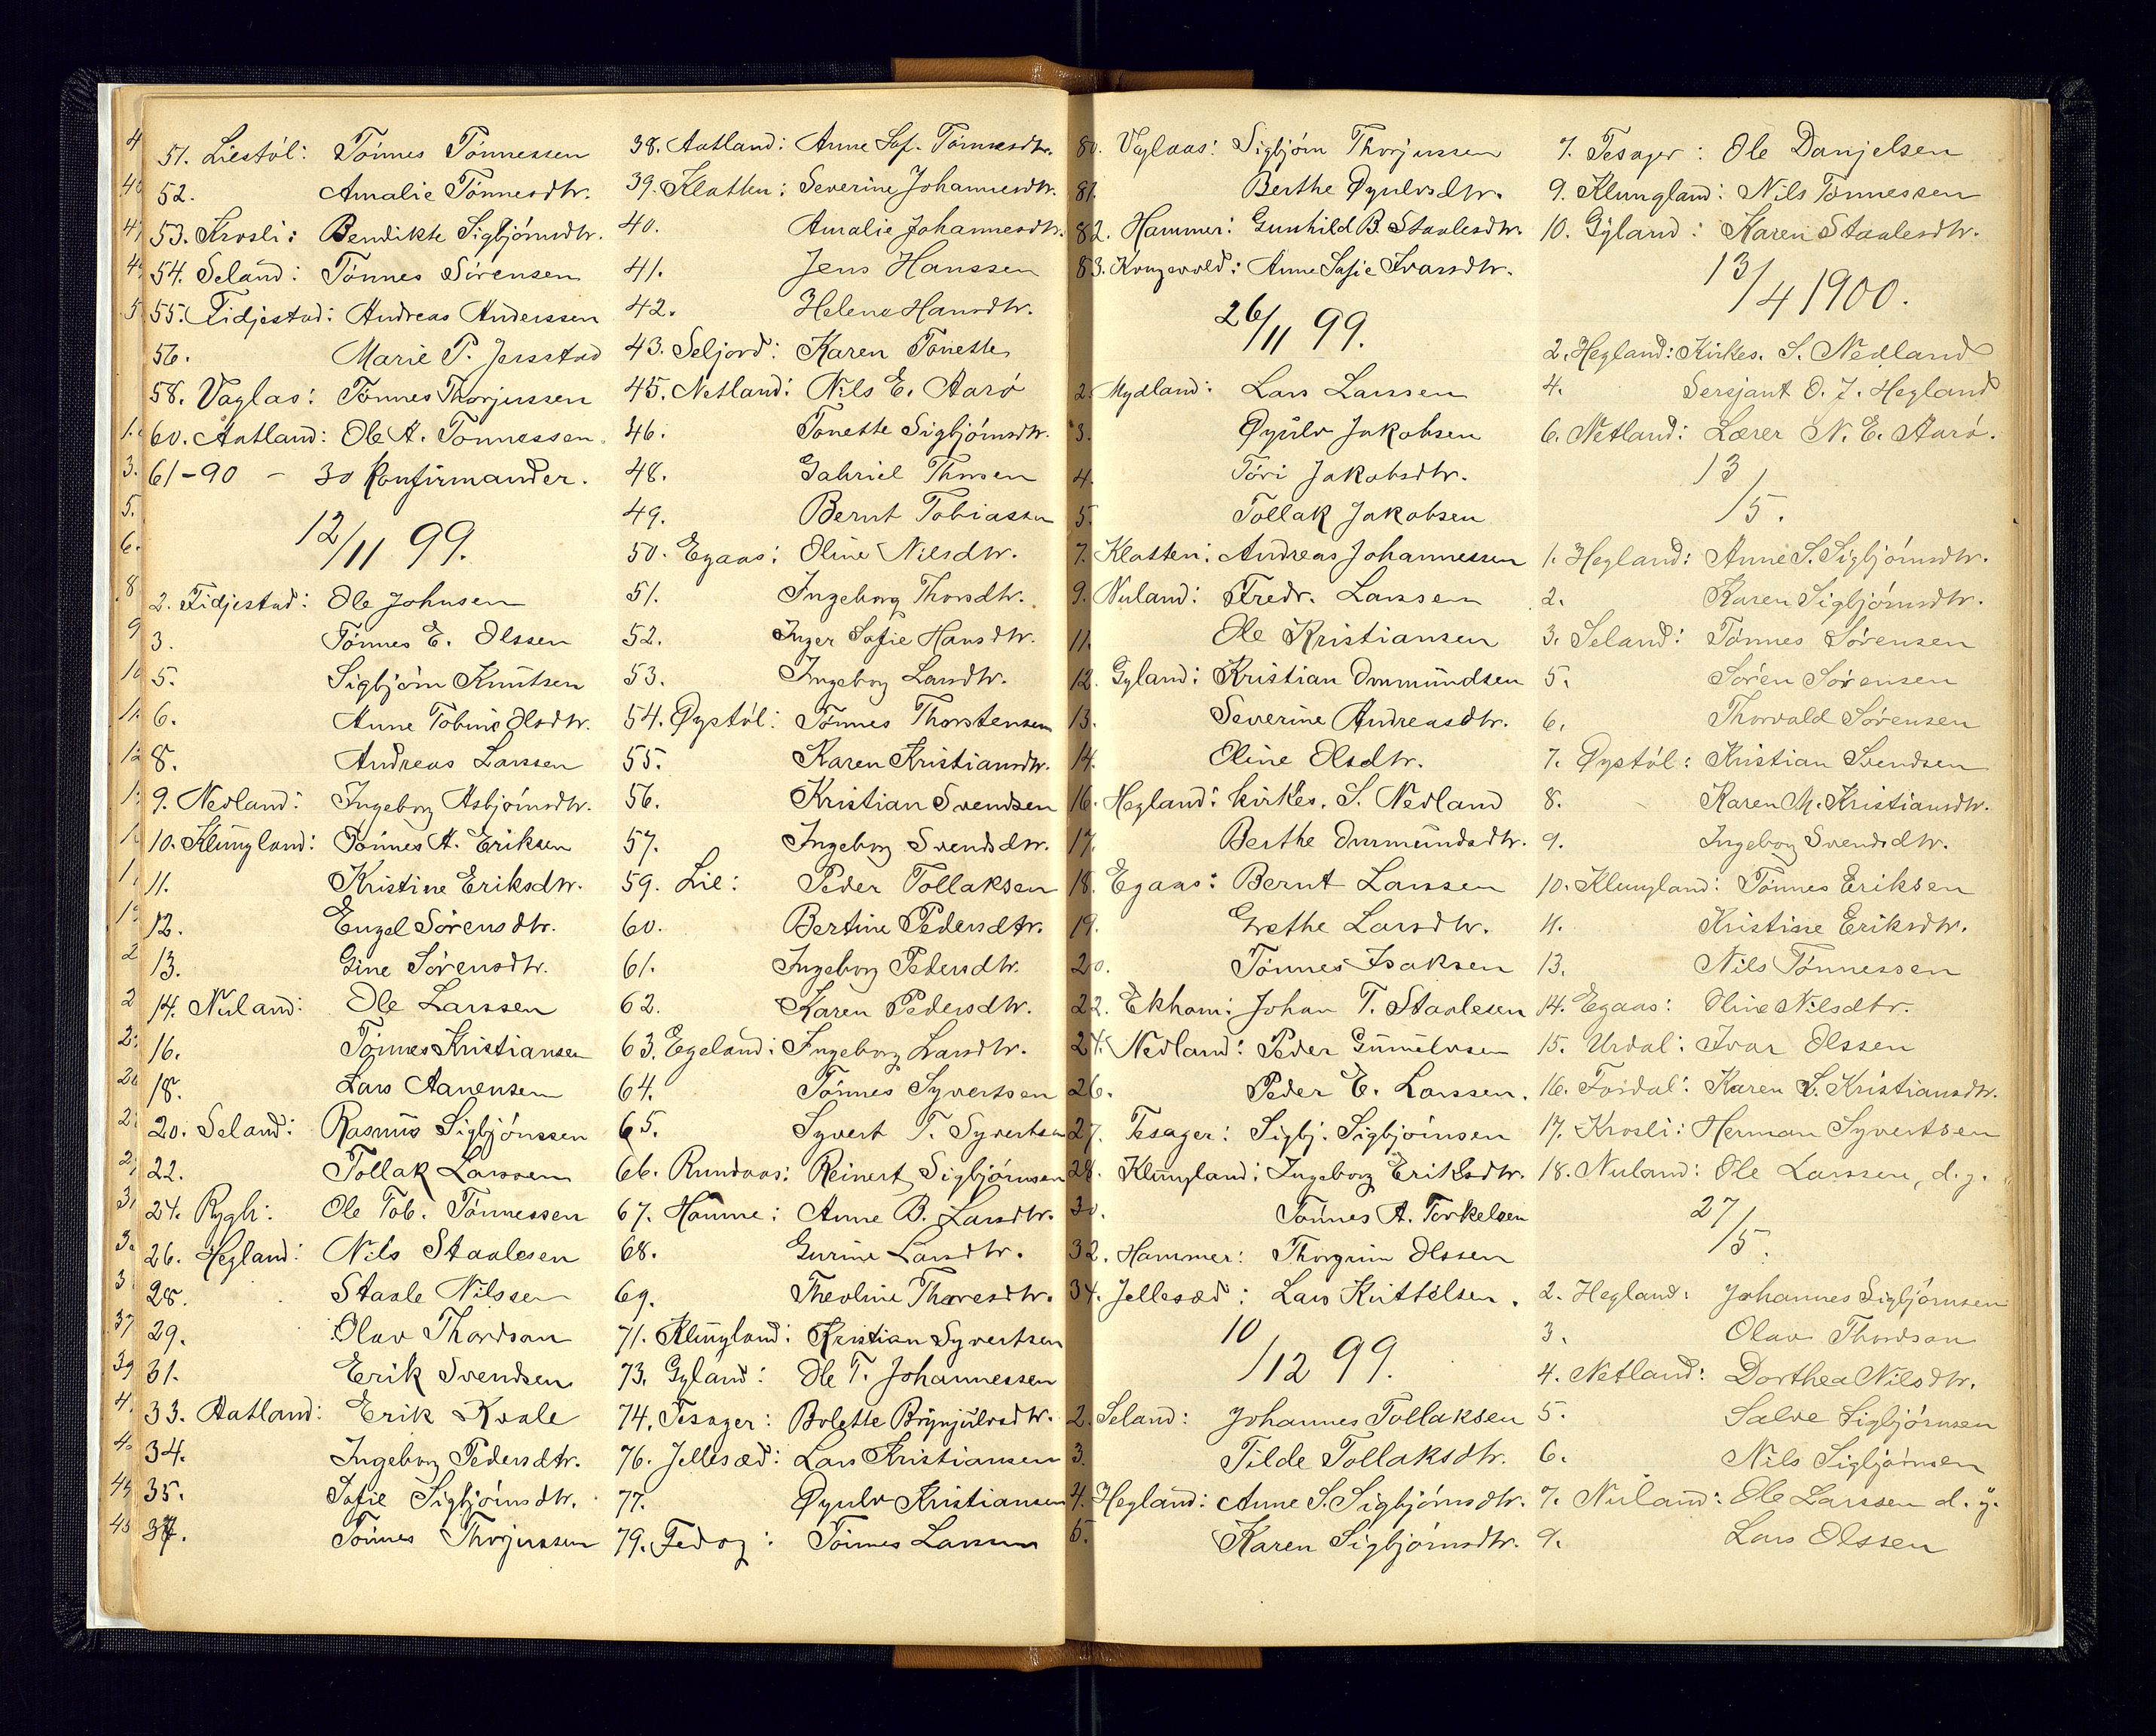 51. Liestöl: Tönnes Tönnessen
52. Amalie Tönnesdtr.
53. Krosli: Bendikte Sigbjörnsdtr.
54. Seland: Tönnes Sörensen
55. Fidjestad: Andreas Anderssen
56. Marie P. Jersstad
58. Vaglas: Tönnes Thorjussen
60. Aatland: Ole A. Tönnessen
61-90 - 30 Konfirmander.
12/11 99.
2. Fidjestad: Ole Johnsen
3. Tönnes E. Olssen
5. Sigbjörn Knutsen
6. Anne Tobine Olsdtr.
8. Andreas Larssen
9. Nedland: Ingeborg Asbjörnsdtr.
10. Klungland: Tönnes A. Eriksen
11. Kristine Eriksdtr.
12. Engel Sörensdtr.
13. Gine Sörensdtr.
14. Nuland: Ole Larssen
16. Tönnes Kristiansen
18. Lars Aanensen
20. Seland: Rasmus Sigbjörnssen
22. Tollak Larssen
24. Rygh: Ole Tob. Tönnessen
26. Hegland: Nils Staalesen
28. Staale Nilssen
29. Olav Thordson
31. Erik Svendsen
33. Aatland: Erik Kvale
34. Ingeborg Pedersdtr.
35. Sofie Sigbjörnsdtr.
37. Tönnes Thorjussen
38. Aatland: Anne Sof. Tönnesdtr.
39. Klatten: Severine Johannesdtr.
40. Amalie Johannesdtr.
41. Jens Hanssen
42. Helene Hansdtr.
43. Seljord: Karen Tonette
45. Netland: Nils E. Aarö
46. Tonette Sigbjörnsdtr.
48. Gabriel Thorsen
49. Bernt Tobiassen
50. Egaas: Oline Nilsdtr.
51. Ingeborg Thorsdtr.
52. Inger Sofie Hansdtr.
53. Ingeborg Larsdtr.
54. Øystöl: Tönnes Thorstensen
55. Karen Kristiansdtr.
56. Kristian Svendsen
57. Ingeborg Svendsdtr.
59. Lie: Peder Tollaksen
60. Bertine Pedersdtr.
61. Ingeborg Pedersdtr.
62. Karen Pedersdtr.
63. Egeland: Ingeborg Larsdtr.
64. Tönnes Syvertsen
65. Syvert T. Syvertsen
66. Rundaas: Reinert Sigbjörnsen
67. Hamme: Anne B. Larsdtr.
68. Gurine Larsdtr.
69. Theoline Thoresdtr.
71. Klungland: Kristian Syvertsen
73. Gyland: Ole T. Johannessen
74. Tesager: Bolette Brynjulvsdtr.
76. Jellesæd: Lars Kristiansen
77. Øyulv Kristiansen
79. Fedog: Tönnes Larssen
80. Vaglaas: Sigbjörn Thorjussen
81. Berthe Øyulvsdtr.
82. Hammer: Gunhild B. Staalesdtr.
83. Kongevold: Anne Sofie Ivarsdtr.
26/11 99.
2. Mydland: Lars Larssen
3. Øyulv Jakobsen
4. Töri Jakobsdtr.
5. Tollak Jakobsen
7. Klatten: Andreas Johannessen
9. Nuland: Fredr. Larssen
11. Ole Kristiansen
12. Gyland: Kristian Ommundsen
13. Severine Andreasdtr.
14. Oline Olsdtr.
16. Hegland: Kirkes. S. Nedland
17. Berthe Ommundsdtr.
18. Egaas: Bernt Larssen
19. Grethe Larsdtr.
20. Tönnes Isaksen
22. Ekhom: Johan T. Staalesen
24. Nedland: Peder Gunnulvsen
26. Peder E. Larssen.
27. Tesager: Sigbj. Sigbjörnsen
28. Klungland: Ingeborg Eriksdtr.
30. Tönnes A. Torkelsen
32. Hammer: Thorgrim Olssen
34. Jellesæd: Lars Kittelsen.
10/12 99.
2. Seland: Johannes Tollaksen
3. Tilde Tollaksdtr.
4. Hegland: Anne S. Sigbjörnsdtr.
5. Karen Sigbjörnsdtr.
7. Tesager: Ole Danjelsen
9. Klungland: Nils Tönnessen
10. Gyland: Karen Staalesdtr.
13/4 1900.
2. Hegland: Kirkes. S. Nedland
4. Sersjant O. J. Hegland
6. Netland: Lærer N. E. Aarö.
13/5.
1. Hegland: Anne S. Sigbjörnsdtr.
2. Karen Sigbjörnsdtr.
3. Seland: Tönnes Sörensen
5. Sören Sörensen
6. Thorvald Sörensen
7. Øystöl: Kristian Svendsen
8. Karen M. Kristiansdtr.
9. Ingeborg Svendsdtr.
10. Klungland: Tönnes Eriksen
11. Kristine Eriksdtr.
13. Nils Tönnessen
14. Egaas: Oline Nilsdtr.
15. Urdal: Ivar Olssen
16. Fordal: Karen S. Kristiansdtr.
17. Krosli: Herman Syvertsen
18. Nuland: Ole Larssen, d.y.
27/5.
2. Hegland: Johannes Sigbjörnsen
3. Olav Thordson
4. Netland: Dorthea Nilsdtr.
5. Salve Sigbjörnsen
6. Nils Sigbjörnsen
7. Nuland: Ole Larssen d.y.
9. Lars Olssen